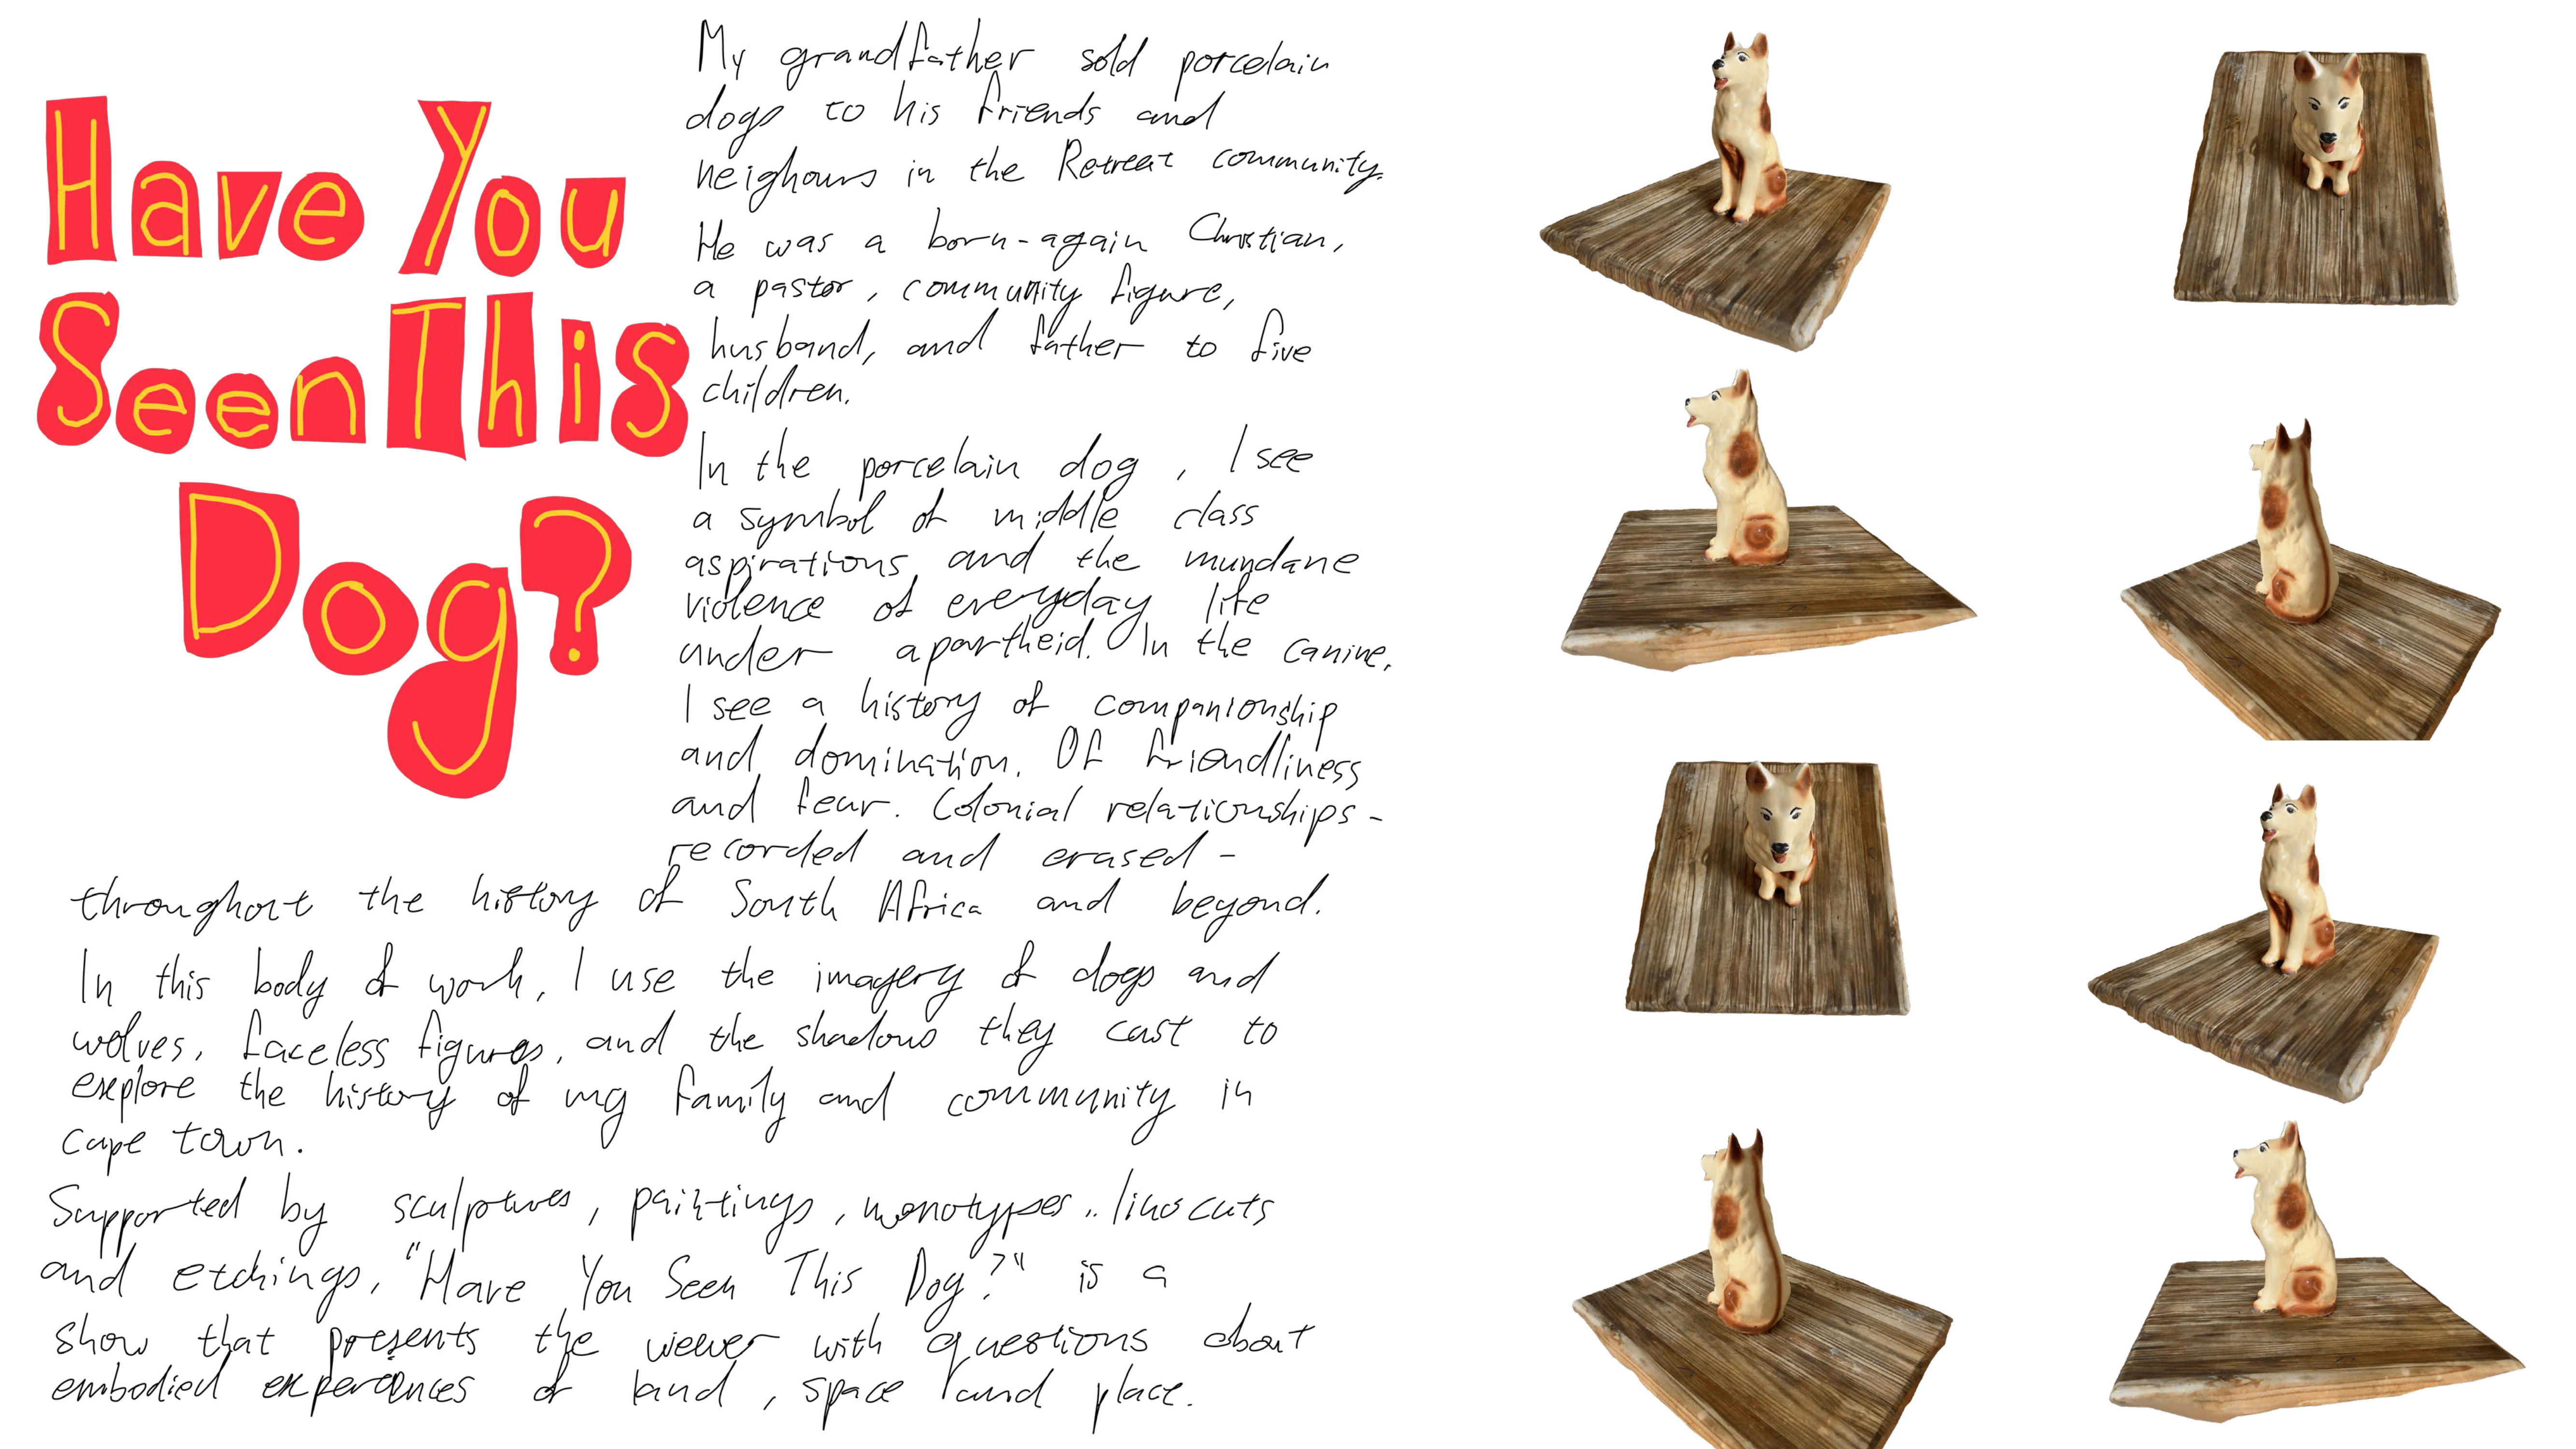 Have You
Seen This
Dog?
My grandfather sold porcelain
dogs to his friends and
neighours in the Retreat community.
He was a born-again Christian,
a pastor, community figure,
husband, and father to five
children.
In the porcelain dog, I see
a symbol of middle class
aspirations and the mundane
violence of everyday life
under apartheid. In the canine,
I see a history of companionship
and domination. Of friendliness
and fear. Colonial relationships -
recorded and erased -
throughout the history of South Africa and beyond.
In this body of work, I use the imagery of dogs and
wolves, faceless figures, and the shadows they cast to
explore the history of my family and community in
Cape Town.
Supported by sculptures, paintings, monotypes, linocuts
and etchings, "Have You Seen This Dog?" is a
show that presents the viewer with questions about
embodied experiences of land, space and place.